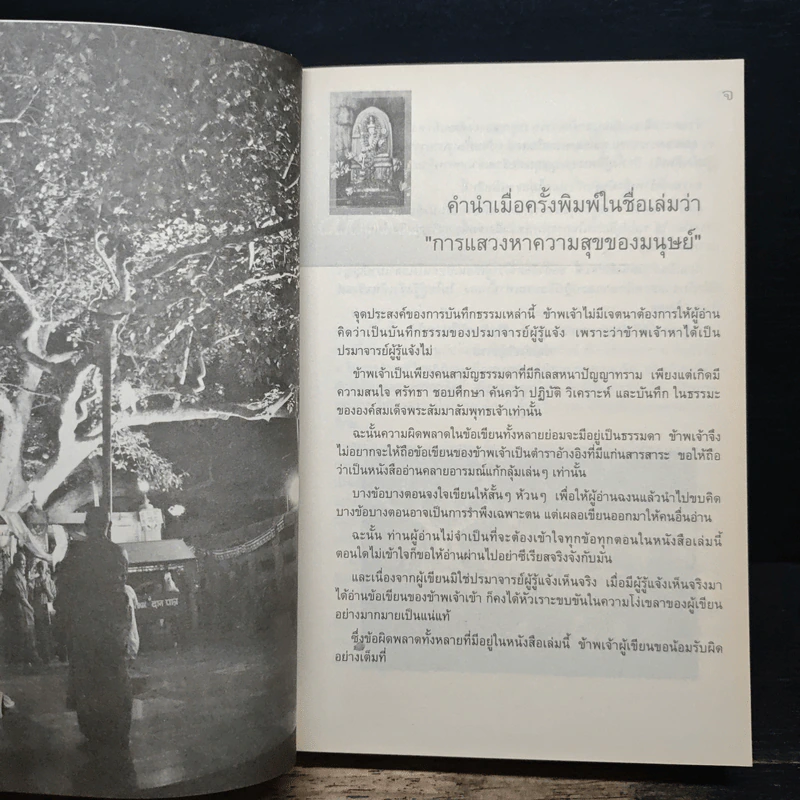 จ
คำนำเมื่อครั้งพิมพ์ในชื่อเล่มว่า
"การแสวงหาความสุขของมนุษย์"
จุดประสงค์ของการบันทึกธรรมเหล่านี้ ข้าพเจ้าไม่มีเจตนาต้องการให้ผู้อ่าน
คิดว่าเป็นบันทึกธรรมของปรมาจารย์ผู้รู้แจ้ง เพราะว่าข้าพเจ้าหาได้เป็น
ปรมาจารย์ผู้รู้แจ้งไม่
ข้าพเจ้าเป็นเพียงคนสามัญธรรมดาที่มีกิเลสหนาปัญญาทราม เพียงแต่เกิดมี
ความสนใจ ศรัทธา ชอบศึกษา ค้นคว้า ปฏิบัติ วิเคราะห์ และบันทึก ในธรรมะ
ขององค์สมเด็จพระสัมมาสัมพุทธเจ้าเท่านั้น
ฉะนั้นความผิดพลาดในข้อเขียนทั้งหลายย่อมจะมีอยู่เป็นธรรมดา ข้าพเจ้าจึง
ไม่อยากจะให้ถือข้อเขียนของข้าพเจ้าเป็นตำราอ้างอิงที่มีแก่นสารสาระ ขอให้ถือ
ว่าเป็นหนังสืออ่านคลายอารมณ์แก้กลุ้มเล่นๆ เท่านั้น
บางข้อบางตอนจงใจเขียนให้สั้นๆ ห้วนๆ เพื่อให้ผู้อ่านฉงนแล้วนำไปขบคิด
บางข้อบางตอนอาจเป็นการรำพึงเฉพาะตน แต่เผลอเขียนออกมาให้คนอื่นอ่าน
ฉะนั้น ท่านผู้อ่านไม่จำเป็นที่จะต้องเข้าใจทุกข้อทุกตอนในหนังสือเล่มนี้
ตอนใดไม่เข้าใจก็ขอให้อ่านผ่านไปอย่าซีเรียสจริงจังกับมัน
และเนื่องจากผู้เขียนมิใช่ปรมาจารย์ผู้รู้แจ้งเห็นจริง เมื่อมีผู้รู้แจ้งเห็นจริงมา
ได้อ่านข้อเขียนของข้าพเจ้าเข้า ก็คงได้หัวเราะขบขันในความโง่เขลาของผู้เขียน
อย่างมากมายเป็นแน่แท้
ซึ่งข้อผิดพลาดทั้งหลายที่มีอยู่ในหนังสือเล่มนี้ ข้าพเจ้าผู้เขียนขอน้อมรับผิด
อย่างเต็มที่